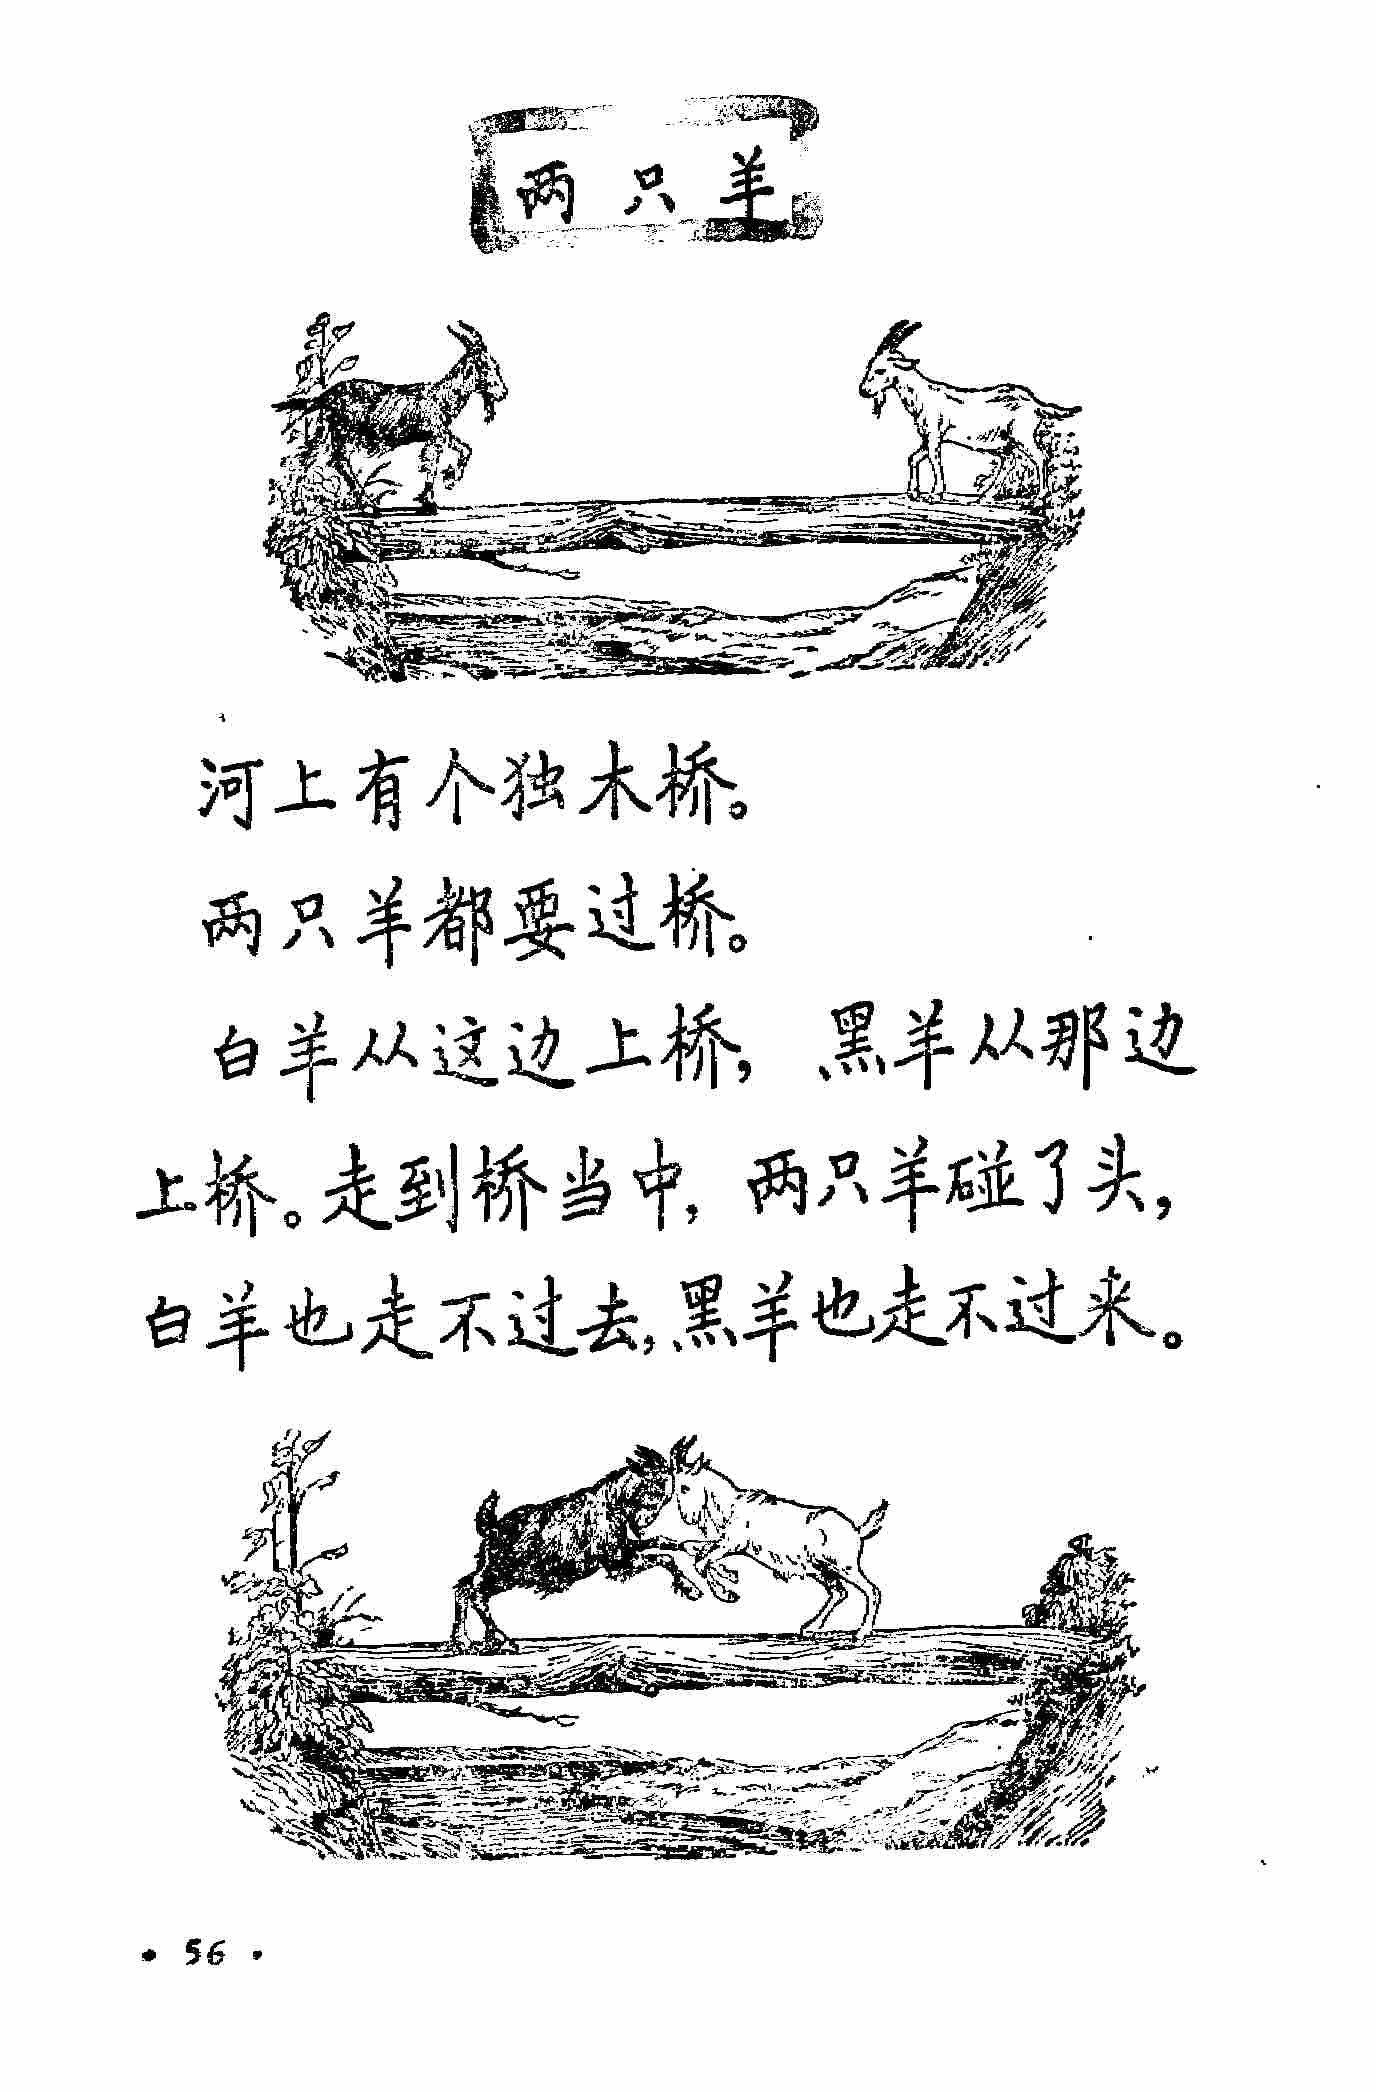 两只羊
河上有个独木桥。
两只羊都要过桥。
白羊从这边上桥，黑羊从那边
上桥。走到桥当中，两只羊碰了头，
白羊也走不过去，黑羊也走不过来。
· 56 ·